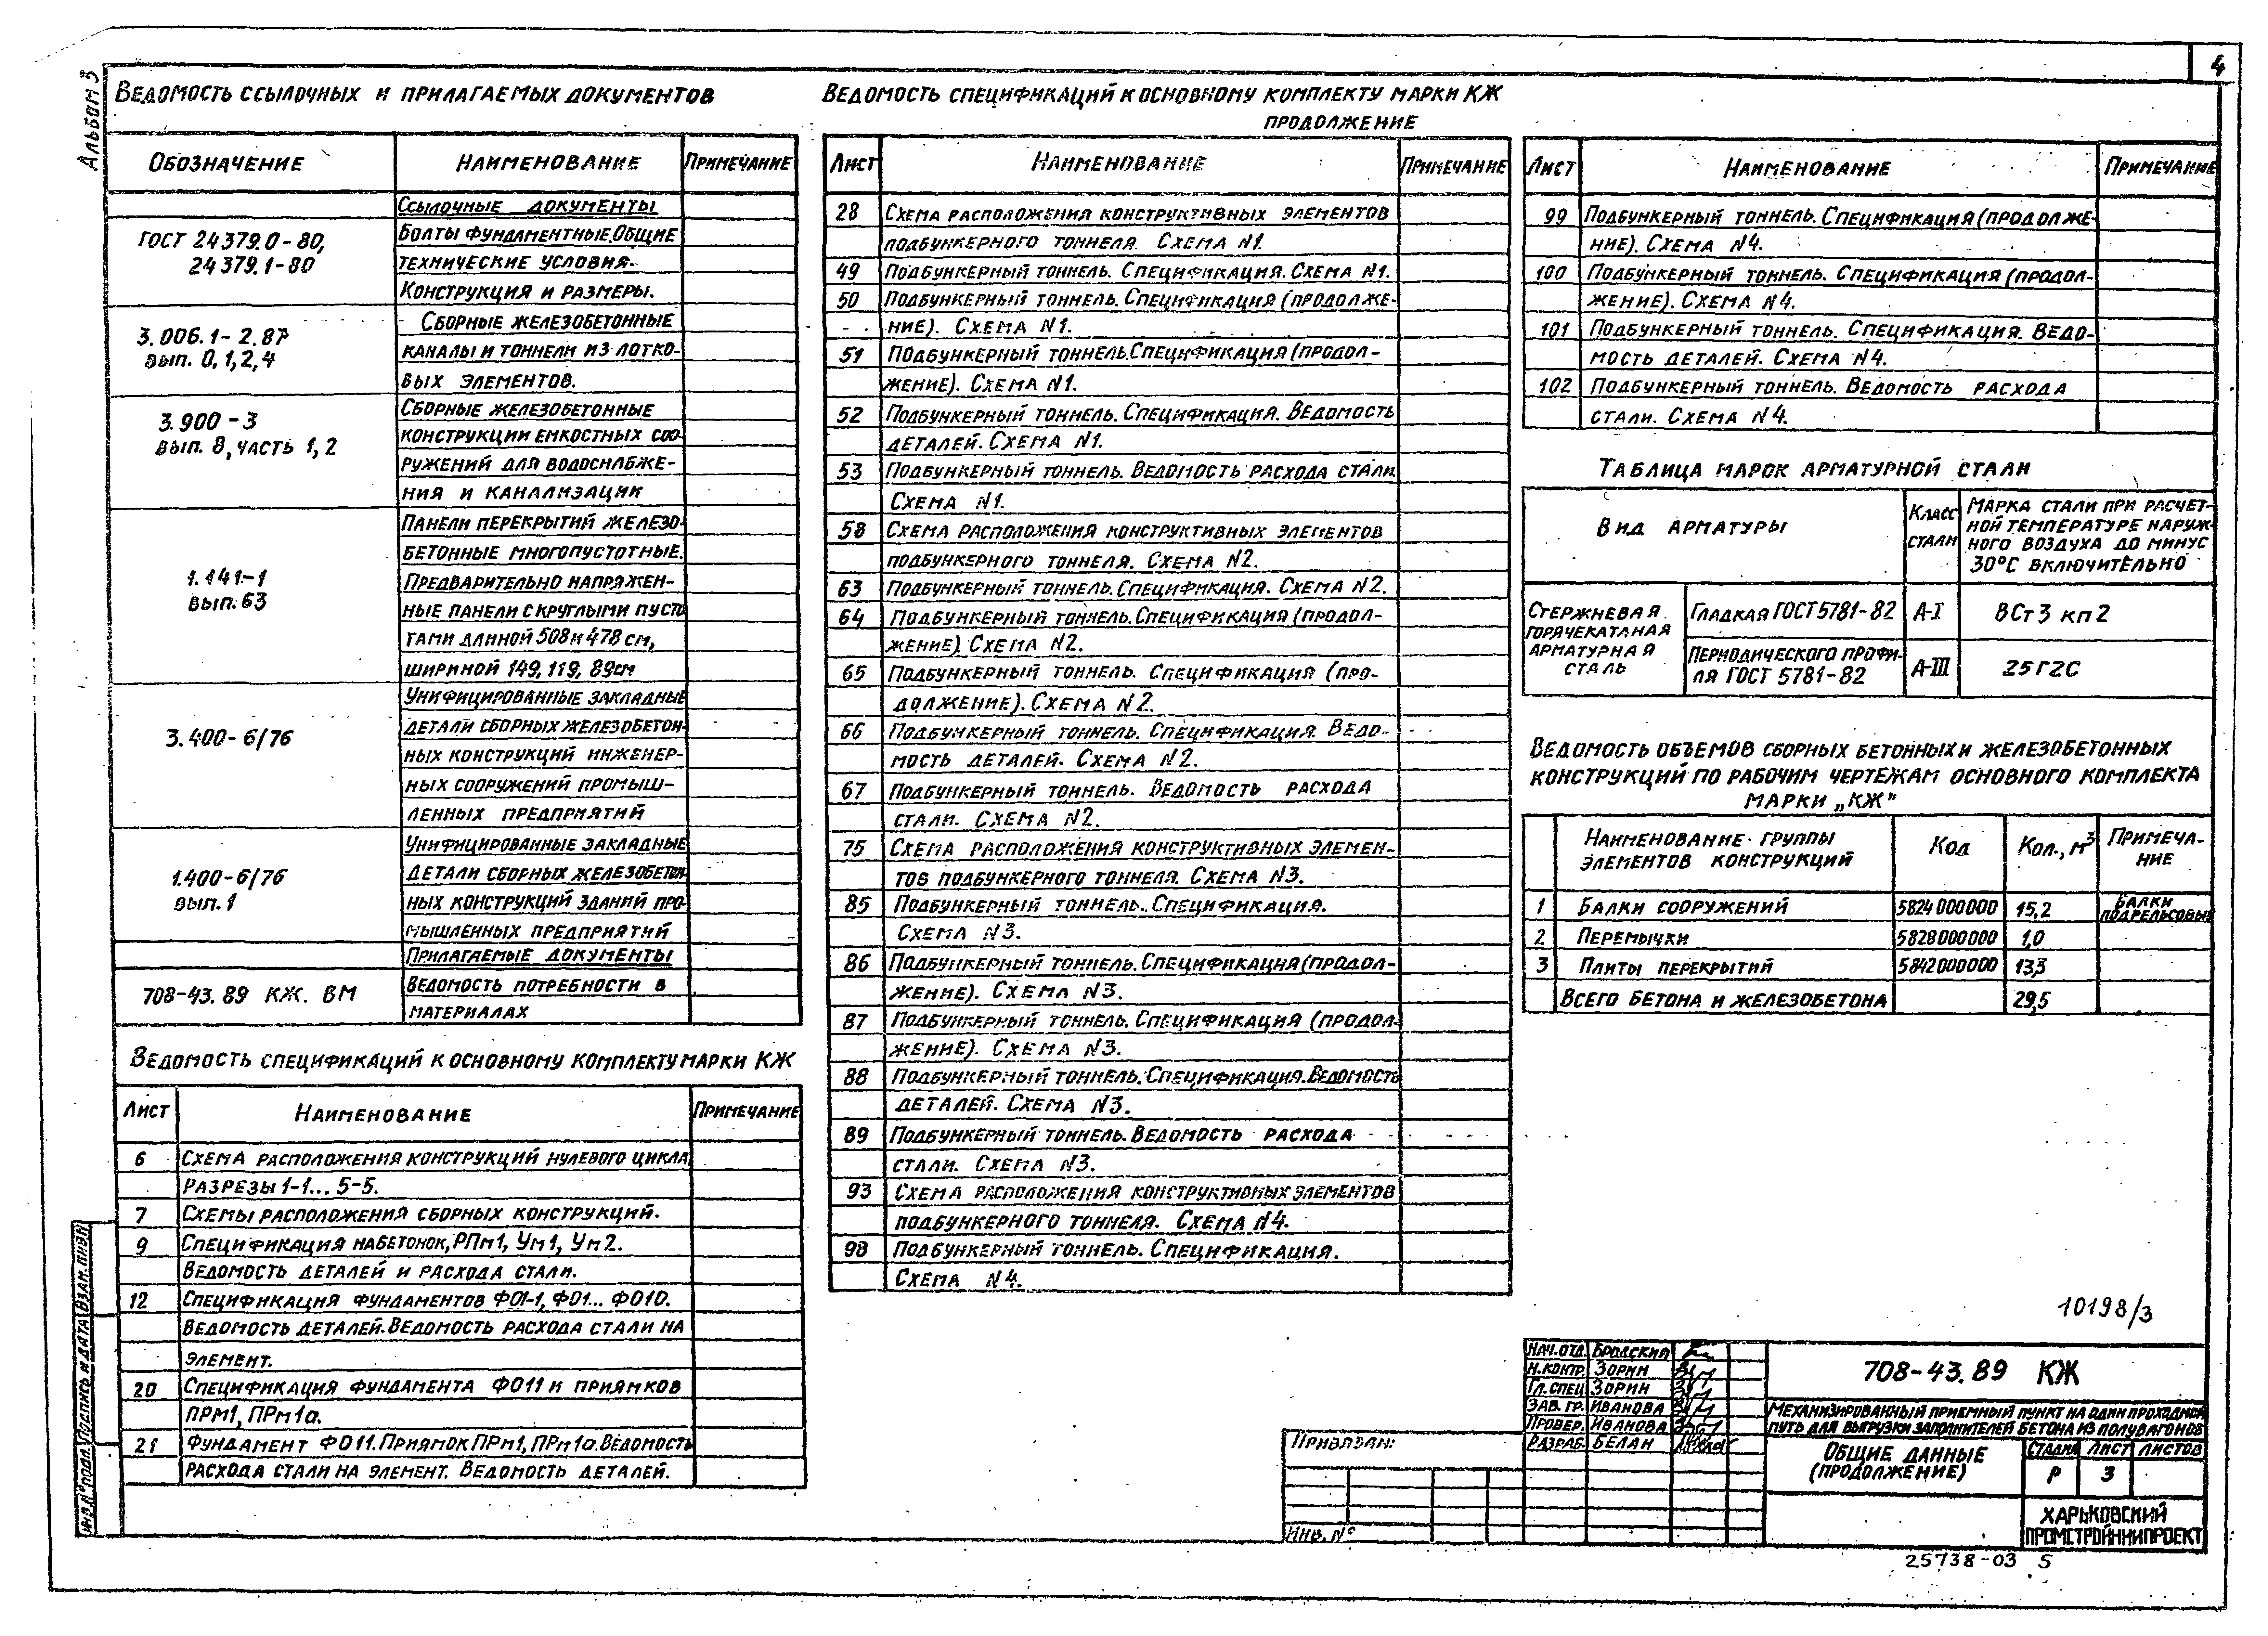 4
Альбом 3
Ведомость ссылочных и прилагаемых документов
Обозначение Наименование Примечание
Ссылочные документы
ГОСТ 24379.0-80, Болты фундаментные. Общие
24379.1-80 технические условия.
Конструкция и размеры.
3.006.1-2.87 Сборные железобетонные
вып. 0,1,2,4 каналы и тоннели из лотко-
вых элементов.
3.900-3 Сборные железобетонные
вып. 8, часть 1,2 конструкции емкостных соо-
ружений для водоснабже-
ния и канализации
Панели перекрытий железо-
бетонные многопустотные.
1.141-1 Предварительно напряжен-
вып. 63 ные панели с круглыми пусто
тами длиной 508 и 478 см,
шириной 149, 119, 89 см
Унифицированные закладные
3.400-6/76 детали сборных железобетон-
ных конструкций инженер-
ных сооружений промыш-
ленных предприятий
Унифицированные закладные
1.400-6/76 детали сборных железобетон
вып. 1 ных конструкций зданий про-
мышленных предприятий
Прилагаемые документы
708-43.89 КЖ. ВМ Ведомость потребности в
материалах
Ведомость спецификаций к основному комплекту марки КЖ
Лист Наименование Примечание
6 Схема расположения конструкций нулевого цикла
Разрезы 1-1... 5-5.
7 Схемы расположения сборных конструкций.
9 Спецификация набетонок, РПм1, Ум1, Ум2.
Ведомость деталей и расхода стали.
12 Спецификация фундаментов ФО1-1, ФО1... ФО10.
Ведомость деталей. Ведомость расхода стали на
элемент.
20 Спецификация фундамента ФО11 и приямков
ПРм1, ПРм1а.
21 Фундамент ФО11. Приямок ПРм1, ПРм1а. Ведомость
расхода стали на элемент. Ведомость деталей.
Ведомость спецификаций к основному комплекту марки КЖ
продолжение
Лист Наименование Примечание
28 Схема расположения конструктивных элементов
подбункерного тоннеля. Схема N1.
49 Подбункерный тоннель. Спецификация. Схема N1.
50 Подбункерный тоннель. Спецификация (продолже-
ние). Схема N1.
51 Подбункерный тоннель. Спецификация (продол-
жение). Схема N1.
52 Подбункерный тоннель. Спецификация. Ведомость
деталей. Схема N1.
53 Подбункерный тоннель. Ведомость расхода стали.
Схема N1.
58 Схема расположения конструктивных элементов
подбункерного тоннеля. Схема N2.
63 Подбункерный тоннель. Спецификация. Схема N2.
64 Подбункерный тоннель. Спецификация (продол-
жение) Схема N2.
65 Подбункерный тоннель. Спецификация (про-
должение). Схема N2.
66 Подбункерный тоннель. Спецификация. Ведо-
мость деталей. Схема N2.
67 Подбункерный тоннель. Ведомость расхода
стали. Схема N2.
75 Схема расположения конструктивных элемен-
тов подбункерного тоннеля. Схема N3.
85 Подбункерный тоннель. Спецификация.
Схема N3.
86 Подбункерный тоннель. Спецификация (продол-
жение). Схема N3.
87 Подбункерный тоннель. Спецификация (продол-
жение). Схема N3.
88 Подбункерный тоннель. Спецификация. Ведомость
деталей. Схема N3.
89 Подбункерный тоннель. Ведомость расхода
стали. Схема N3.
93 Схема расположения конструктивных элементов
подбункерного тоннеля. Схема N4.
98 Подбункерный тоннель. Спецификация.
Схема N4.
Лист Наименование Примечание
99 Подбункерный тоннель. Спецификация (продолже-
ние). Схема N4.
100 Подбункерный тоннель. Спецификация (продол-
жение). Схема N4.
101 Подбункерный тоннель. Спецификация. Ведо-
мость деталей. Схема N4.
102 Подбункерный тоннель. Ведомость расхода
стали. Схема N4.
Таблица марок арматурной стали
Вид арматуры Класс стали Марка стали при расчет-
ной температуре наруж-
ного воздуха до минус
30°С включительно
Стержневая горячекатаная арматурная сталь Гладкая ГОСТ 5781-82 А-I ВСт3 кп2
Периодического профи-
ля ГОСТ 5781-82 А-III 25Г2С
Ведомость объемов сборных бетонных и железобетонных
конструкций по рабочим чертежам основного комплекта
марки „КЖ"
Наименование группы элементов конструкций Код Кол., м³ Примеча-
ние
1 Балки сооружений 5824000000 15,2 Балки подрельсовые
2 Перемычки 5828000000 1,0
3 Плиты перекрытий 5842000000 13,3
Всего бетона и железобетона 29,5
10198/3
Нач. отд. Бродский
Н. контр. Зорин
Гл. спец. Зорин
Зав. гр. Иванова
Провер. Иванова
Разраб. Белан
708-43.89 КЖ
Механизированный приемный пункт на один проходной
путь для выгрузки заполнителей бетона из полувагонов
Общие данные
(продолжение)
Стадия Лист Листов
Р 3
Харьковский
Промстройниипроект
Привязан:
Инв. №
Инв. № подл. Подпись и дата Взам. инв. №
25738-03 5